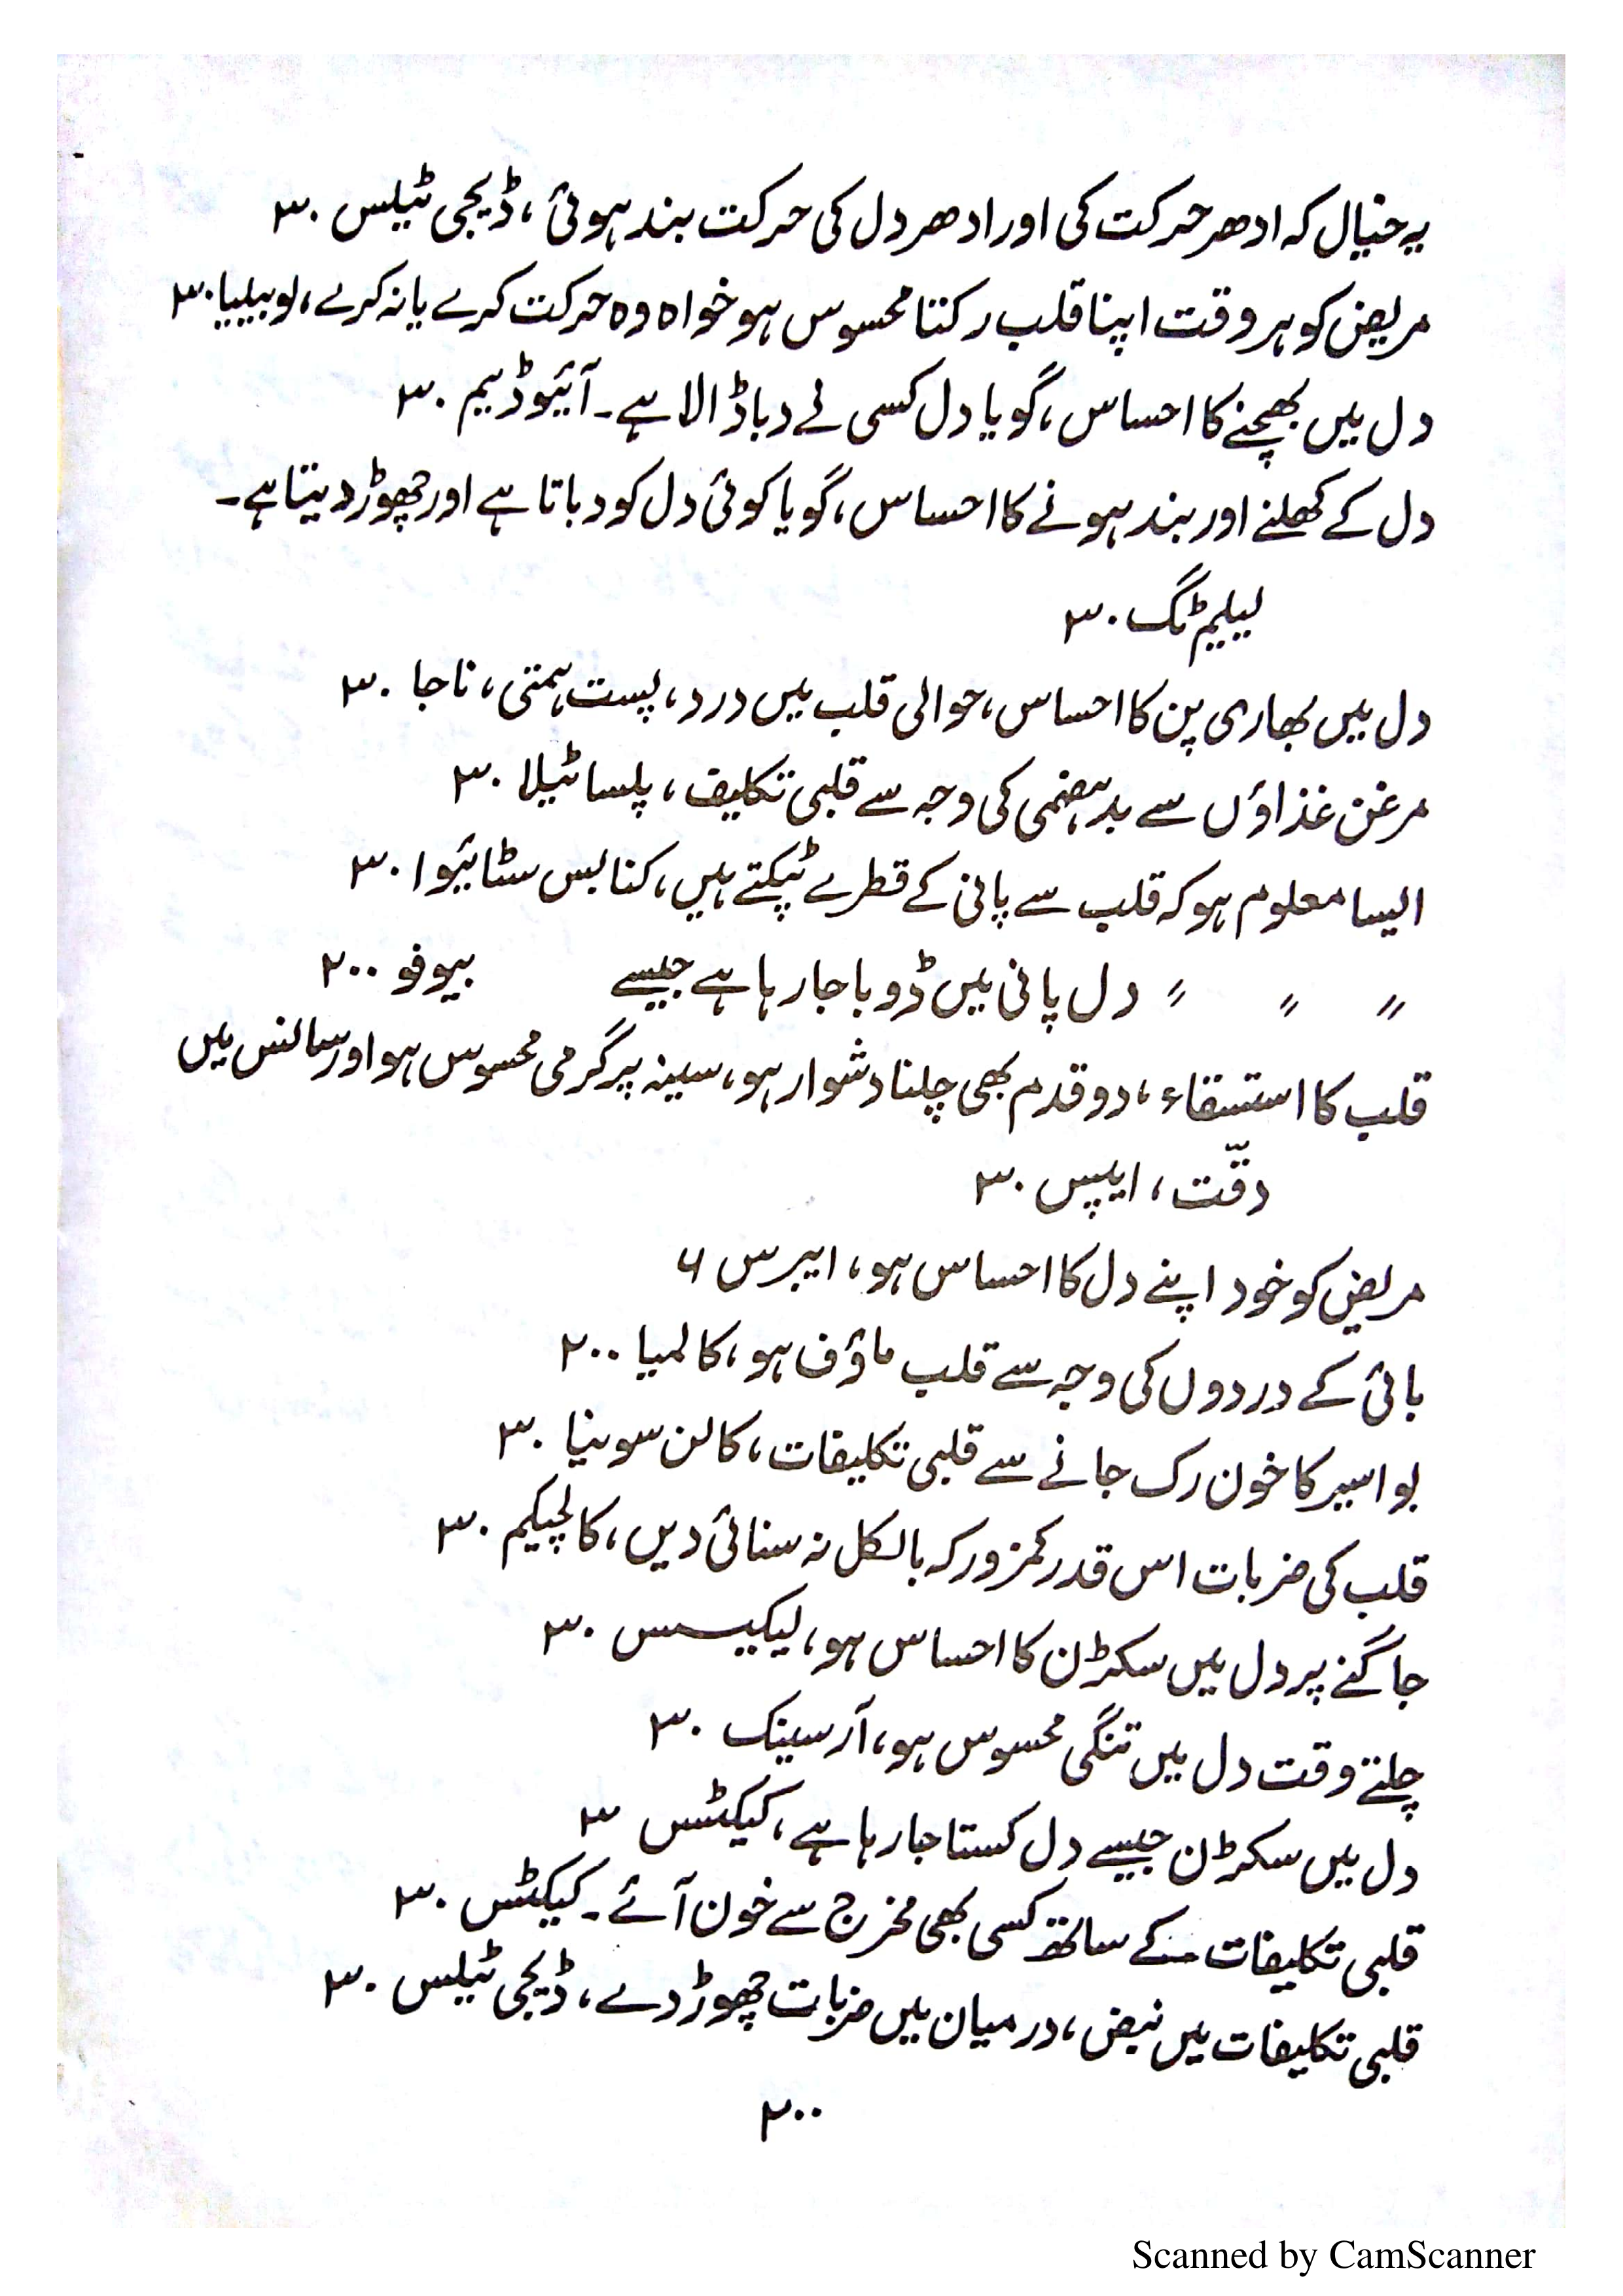 یہ خیال کہ ادھر حرکت کی اور ادھر دل کی حرکت بند ہوئی، ڈیجی ٹیلس ۳۰
مریض کو ہر وقت اپنا قلب رکتا محسوس ہو خواہ وہ حرکت کرے یا نہ کرے، لوبیلیا ۳۰
دل میں بھچنے کا احساس، گویا دل کسی نے دبا ڈالا ہے۔ آئیوڈیم ۳۰
دل کے کھلنے اور بند ہونے کا احساس، گویا کوئی دل کو دباتا ہے اور چھوڑ دیتا ہے۔
لیلیم ٹگ ۳۰
دل میں بھاری پن کا احساس، حوالی قلب میں درد، پست ہمتی، ناجا ۳۰
مرغن غذاؤں سے بدہضمی کی وجہ سے قلبی تکلیف، پلساٹیلا ۳۰
ایسا معلوم ہو کہ قلب سے پانی کے قطرے ٹپکتے ہیں، کنابس سٹائیوا ۳۰
〃 〃 〃 دل پانی میں ڈوبا جا رہا ہے جیسے بیوفو ۲۰۰
قلب کا استسقاء، دو قدم بھی چلنا دشوار ہو، سینہ پر گرمی محسوس ہو اور سانس میں
دقّت، ایپس ۳۰
مریض کو خود اپنے دل کا احساس ہو، ایبرس ۶
بائی کے دردوں کی وجہ سے قلب ماؤف ہو، کالمیا ۲۰۰
بواسیر کا خون رک جانے سے قلبی تکلیفات، کالن سونیا ۳۰
قلب کی ضربات اس قدر کمزور کہ بالکل نہ سنائی دیں، کالچیکم ۳۰
جاگنے پر دل میں سکڑن کا احساس ہو، لیکیسس ۳۰
چلتے وقت دل میں تنگی محسوس ہو، آرسینک ۳۰
دل میں سکڑن جیسے دل کستا جا رہا ہے، کیکٹس ۳
قلبی تکلیفات کے ساتھ کسی بھی مخرج سے خون آئے۔ کیکٹس ۳۰
قلبی تکلیفات میں نبض، درمیان میں ضربات چھوڑ دے، ڈیجی ٹیلس ۳۰
۲۰۰
Scanned by CamScanner